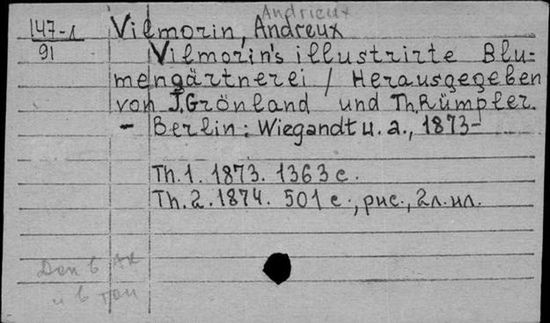 Andrieux
147-1 Vilmorin, Andreux
91 Vilmorin's illustrirte Blu-
mengärtnerei / Herausgegeben
von J. Grönland und Th. Rümpler.
– Berlin: Wiegandt u. a., 1873-
Th. 1. 1873. 1363 с.
Th. 2. 1874. 501 с., рис., 2 л. ил.
Доп в
и в